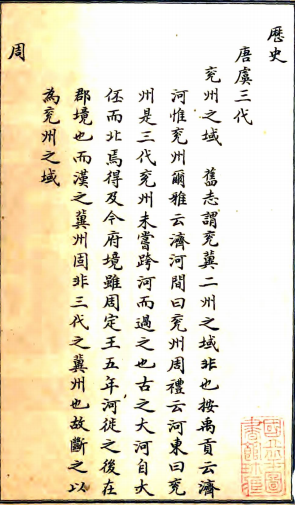 歷史
唐虞三代
兗州之域　舊志謂兗冀二州之域非也按禹貢云濟
河惟兗州爾雅云濟河間曰兗州周禮云河東曰兗
州是三代兗州未嘗跨河而過之也古之大河自大
伾而北焉得及今府境雖周定王五年河徙之後在
郡境也而漢之冀州固非三代之冀州也故斷之以
為兗州之域
周